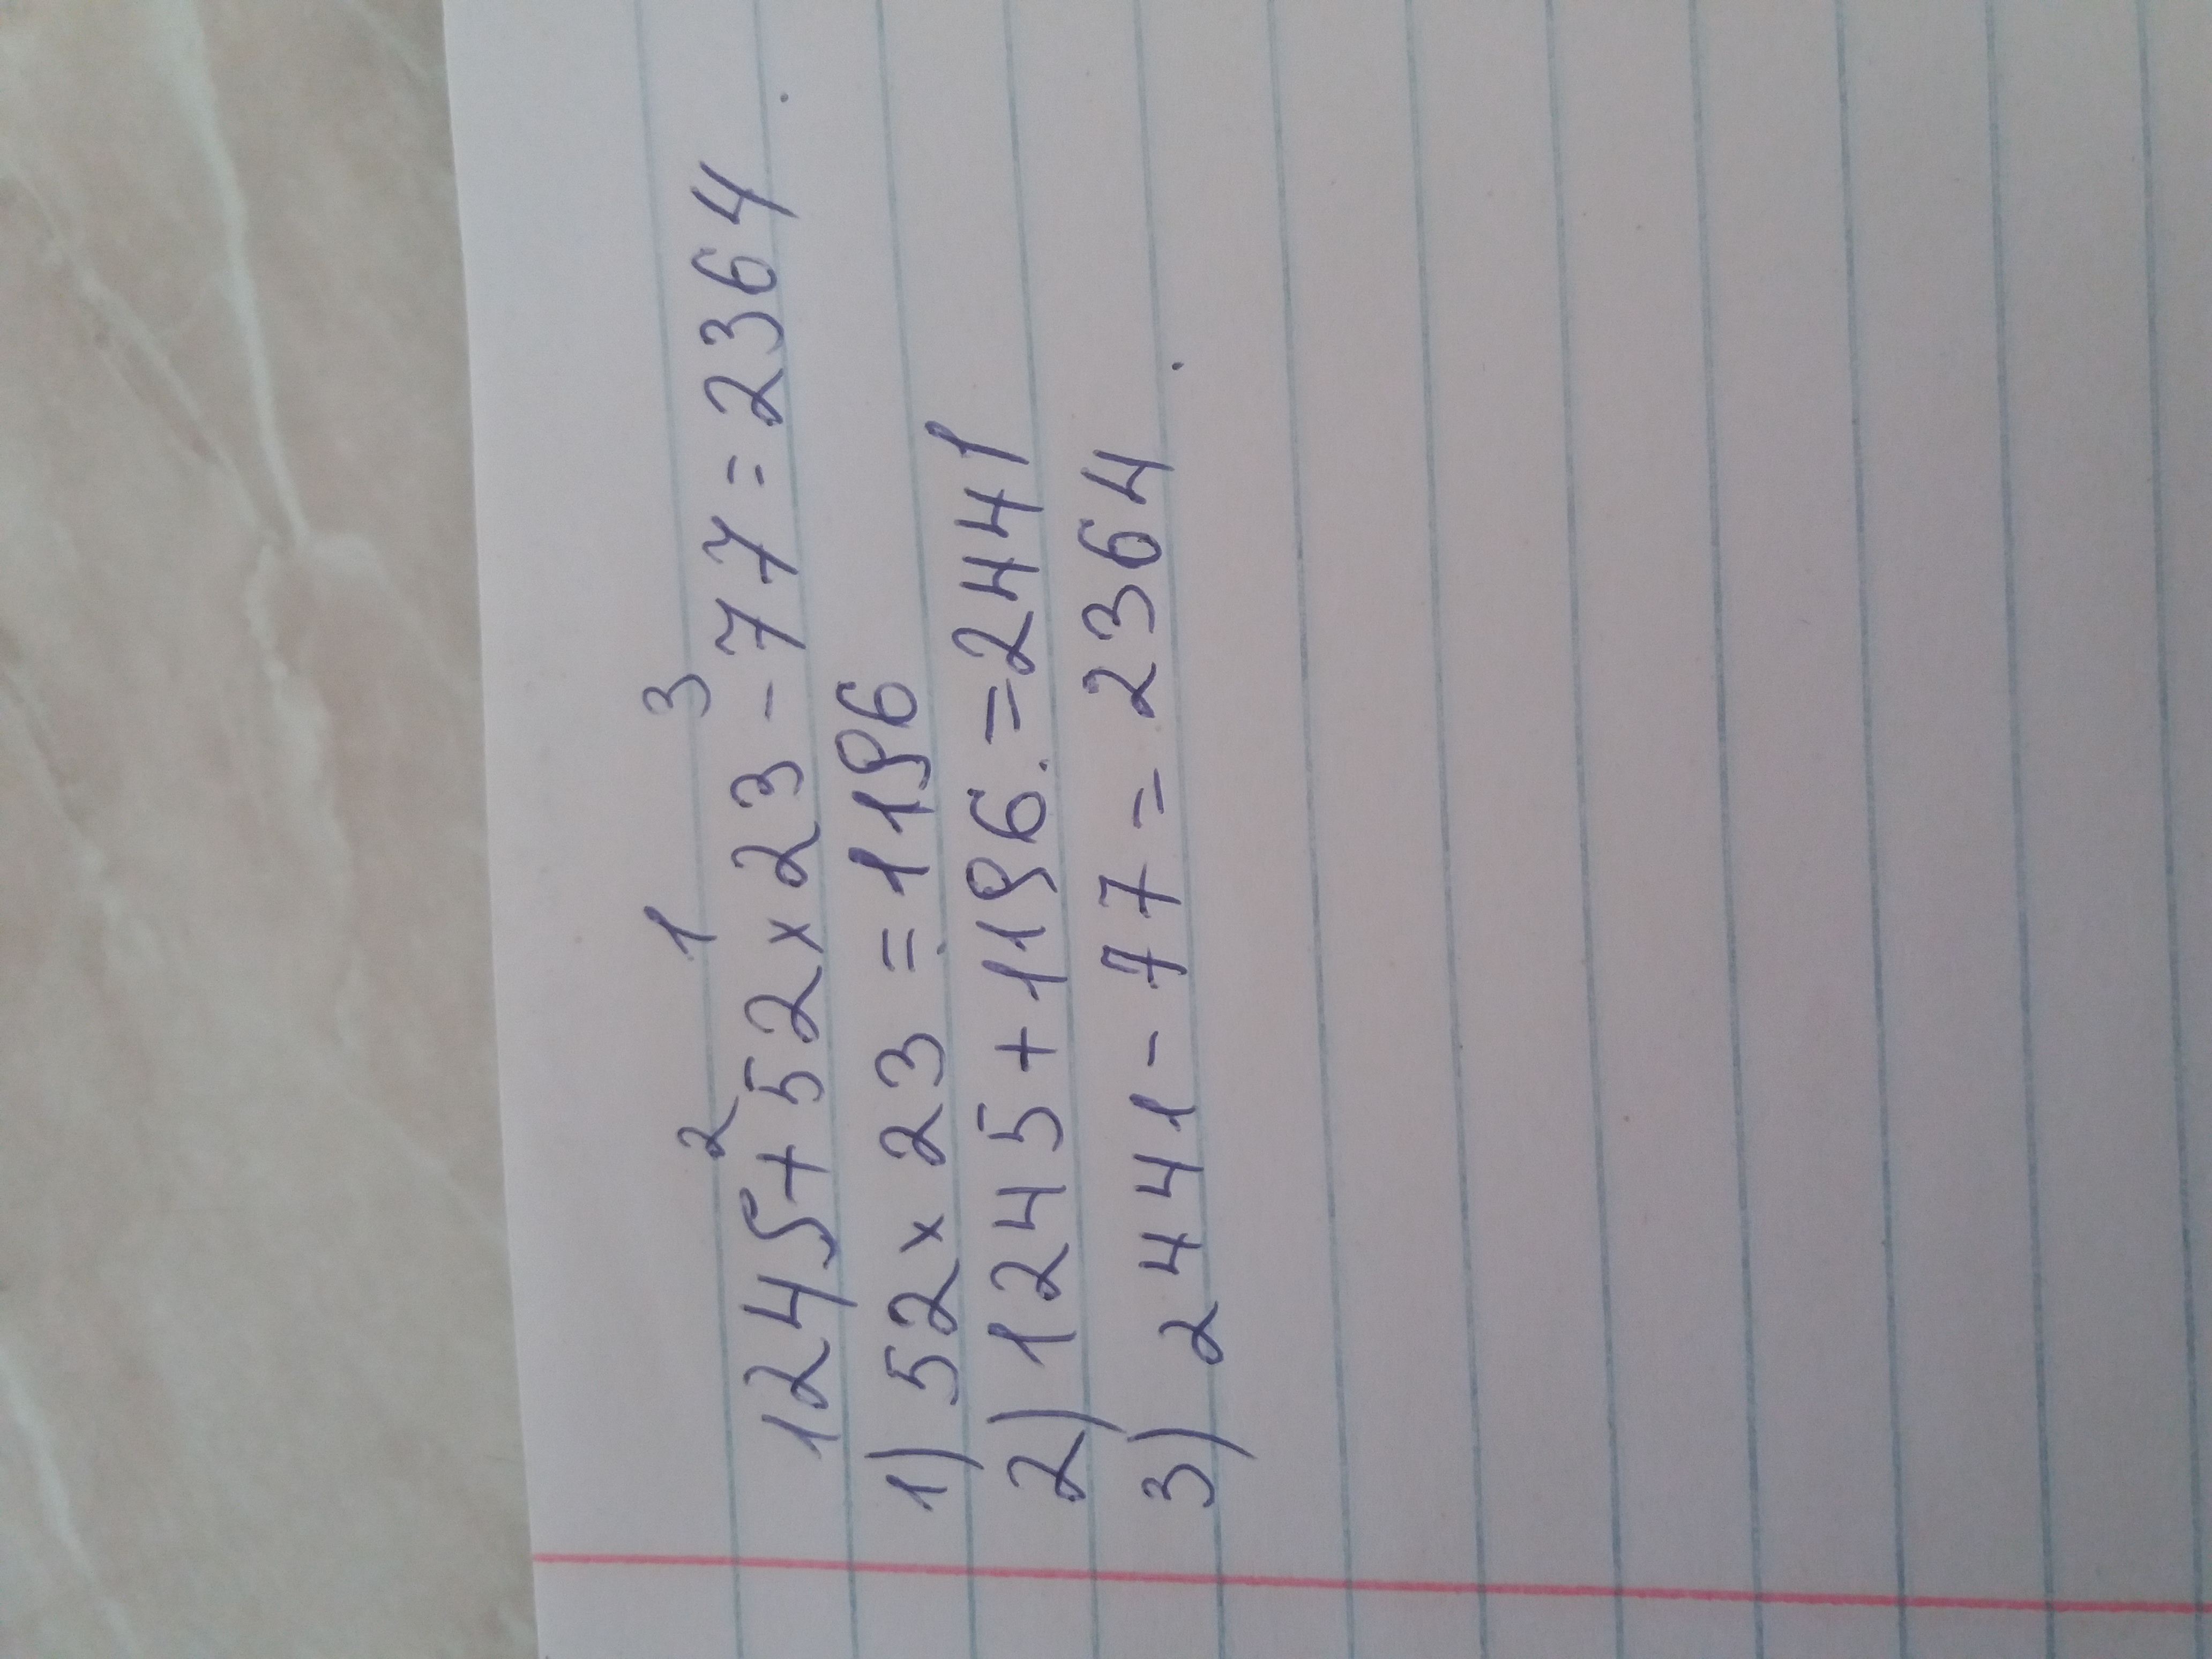 2 1 3
1245+52×23-77=2364
1) 52×23=1196
2) 1245+1196.=2441
3) 2441-77=2364.